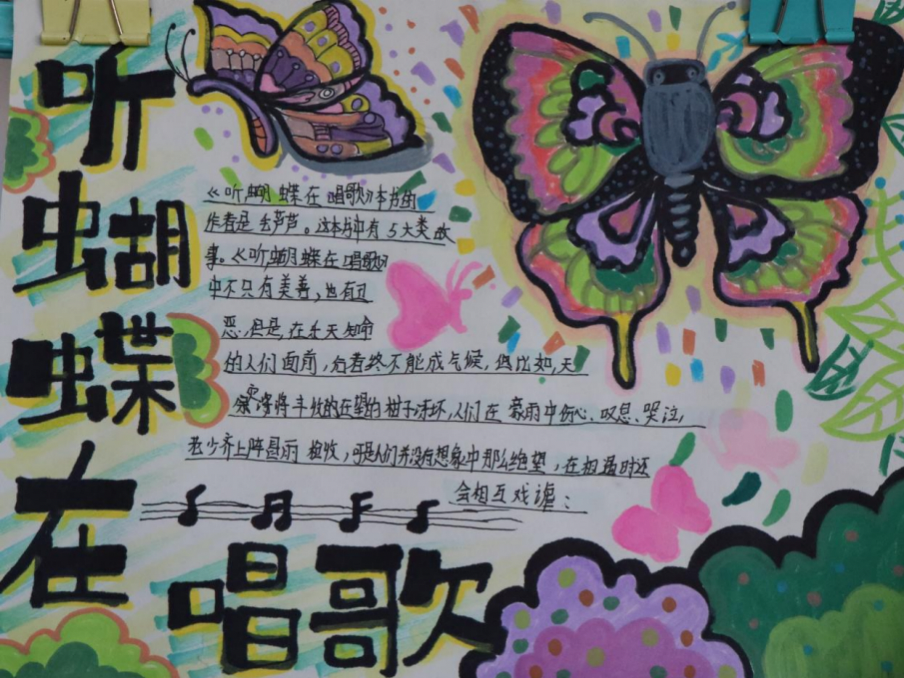 听蝴蝶在唱歌
《听蝴蝶在唱歌》本书的
作者是 芦芦。这本书中有5大类故
事。《听蝴蝶在唱歌》
中不只有美善，也有丑
恶.但是,在乐天知命
的人们面前，后者终不能成气候，但比如，天
将丰收在望的柑子冻坏,人们在 豪雨中伤心、叹息、哭泣，
老少齐上阵冒雨 抢收，可是人们并没有想象中那么绝望，在相遇时还
会相互戏谑：